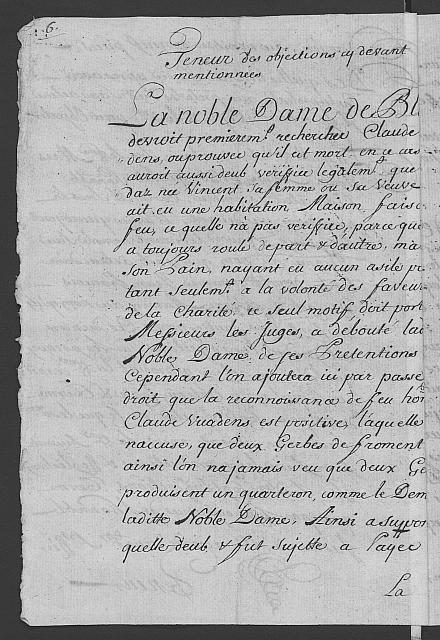 6.
Teneur des objections cy devant
mentionnées
La noble Dame de Bl
devroit premierem.t rechercher Claude
dens, ou prouver qu'il est mort, en ce cas
auroit aussi deub verifier legalem.t que
daz née Vincent sa femme ou sa Veuve
ait eu une habitation Maison faisc
feu, ce quelle n'a pas verifiée, parce que
a toujours roulé de part & d'autre, ma
son Pain, nayant eu aucun asile
tant seulem.t a la volonté des faveur
de la charité, ce seul motif doit port
Messieurs les Juges, a debouté lad
Noble Dame, de ses Pretentions
Cependant l'on ajoutera ici par passe
droit que la reconnoissance de feu hon
Claude Vuadens est positive, laquelle
naccuse, que deux Gerbes de froment
ainsi l'on na jamais veu que deux Ge
produisent un quarteron, comme le Dem
laditte Noble Dame, Ainsi a suppos
quelle deub & fut sujette a Payer
La